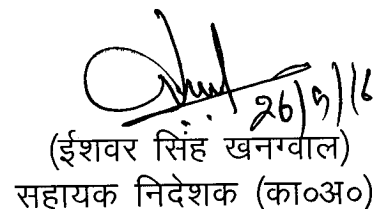 26/5/16
(ईशवर सिंह खनग्वाल)
सहायक निदेशक (का०अ०)